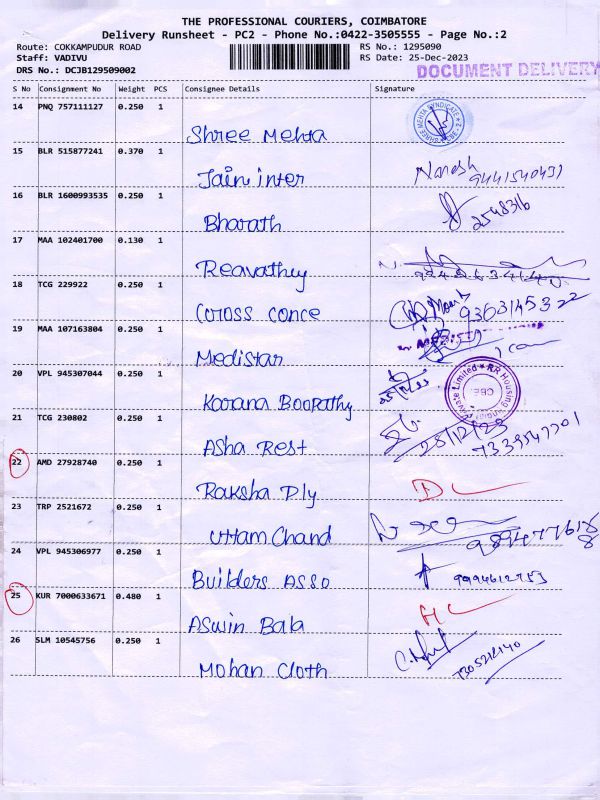 THE PROFESSIONAL COURIERS, COIMBATORE
Delivery Runsheet - PC2 - Phone No.:0422-3505555 - Page No.:2
Route: COKKAMPUDUR ROAD RS No.: 1295090
Staff: VADIVU RS Date: 25-Dec-2023
DRS No.: DCJB129509002 DOCUMENT DELIVERY
S No Consignment No Weight PCS Consignee Details Signature
14 PNQ 757111127 0.250 1
Shree Mehta
15 BLR 515877241 0.370 1
Jain inter Naresh
16 BLR 1600993535 0.250 1
Bharath 2548316
17 MAA 102401700 0.130 1
Reavathey
18 TCG 229922 0.250 1
Coross conce 9363145322
19 MAA 107163804 0.250 1
Medistar
20 VPL 945307044 0.250 1
Koorana Boopathy
21 TCG 230802 0.250 1
Asha Rest 25/12/23 7339547201
22 AMD 27928740 0.250 1
Raksha Ply D L
23 TRP 2521672 0.250 1
Uttam Chand
24 VPL 945306977 0.250 1
Builders Asso 9994612753
25 KUR 7000633671 0.480 1
Aswin Bala H L
26 SLM 10545756 0.250 1
Mohan Cloth